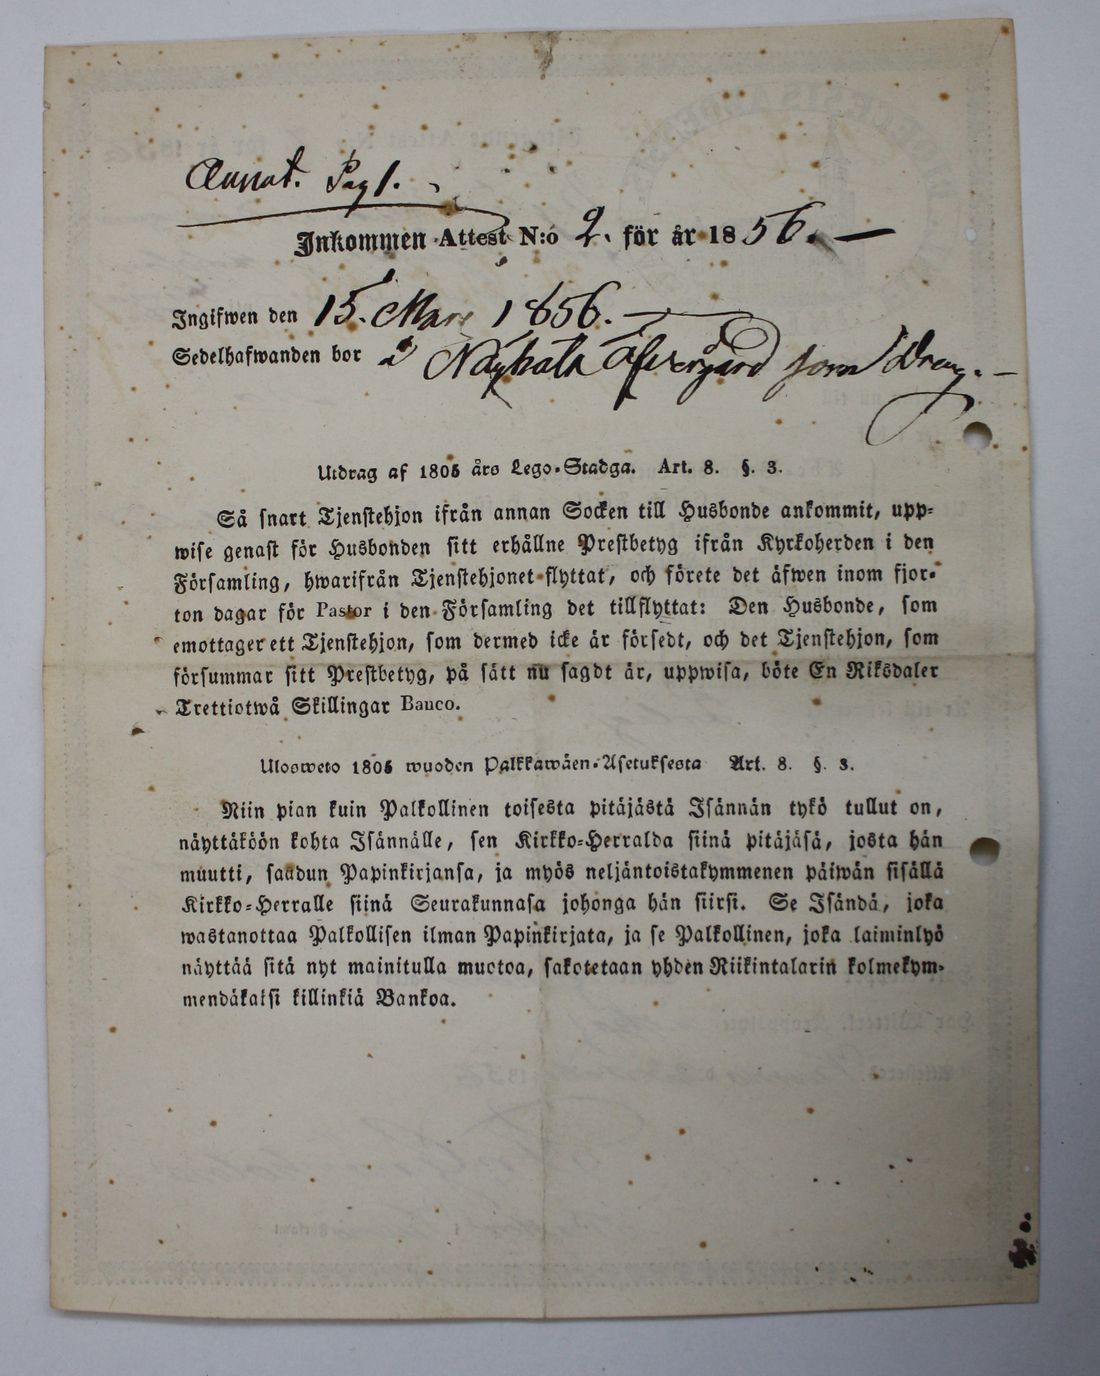 Annot. Pag 1.
Inkommen Attest N:o 2. för år 1856. —
Ingifwen den 15. Mars 1856. —
Sedelhafwanden bor å Näyhälä Öfvergård som Dreng. —
Utdrag af 1805 års Lego-Stadga. Art. 8. §. 3.
Så snart Tjenstehjon ifrån annan Socken till Husbonde ankommit, upp-
wise genast för Husbonden sitt erhållne Prestbetyg ifrån Kyrkoherden i den
Församling, hwarifrån Tjenstehjonet flyttat, och förete det äfwen inom fjor-
ton dagar för Pastor i den Församling det tillflyttat: Den Husbonde, som
emottager ett Tjenstehjon, som dermed icke är försedt, och det Tjenstehjon, som
försummar sitt Prestbetyg, på sätt nu sagdt är, uppwisa, böte En Riksdaler
Trettiotwå Skillingar Banco.
Ulosweto 1805 wuoden Palkkawäen-Asetuksesta Art. 8. §. 3.
Niin pian kuin Palkollinen toisesta pitäjästä Isännän tykö tullut on,
näyttäköön kohta Isännälle, sen Kirkko-Herralda siinä pitäjäsä, josta hän
muutti, saadun Papinkirjansa, ja myös neljäntoistakymmenen päiwän sisällä
Kirkko-Herralle siinä Seurakunnasa johonga hän siirsi. Se Isändä, joka
wastanottaa Palkollisen ilman Papinkirjata, ja se Palkollinen, joka laiminlyö
näyttää sitä nyt mainitulla muotoa, sakotetaan yhden Riikintalarin kolmekym-
mendäkaksi killinkiä Bankoa.